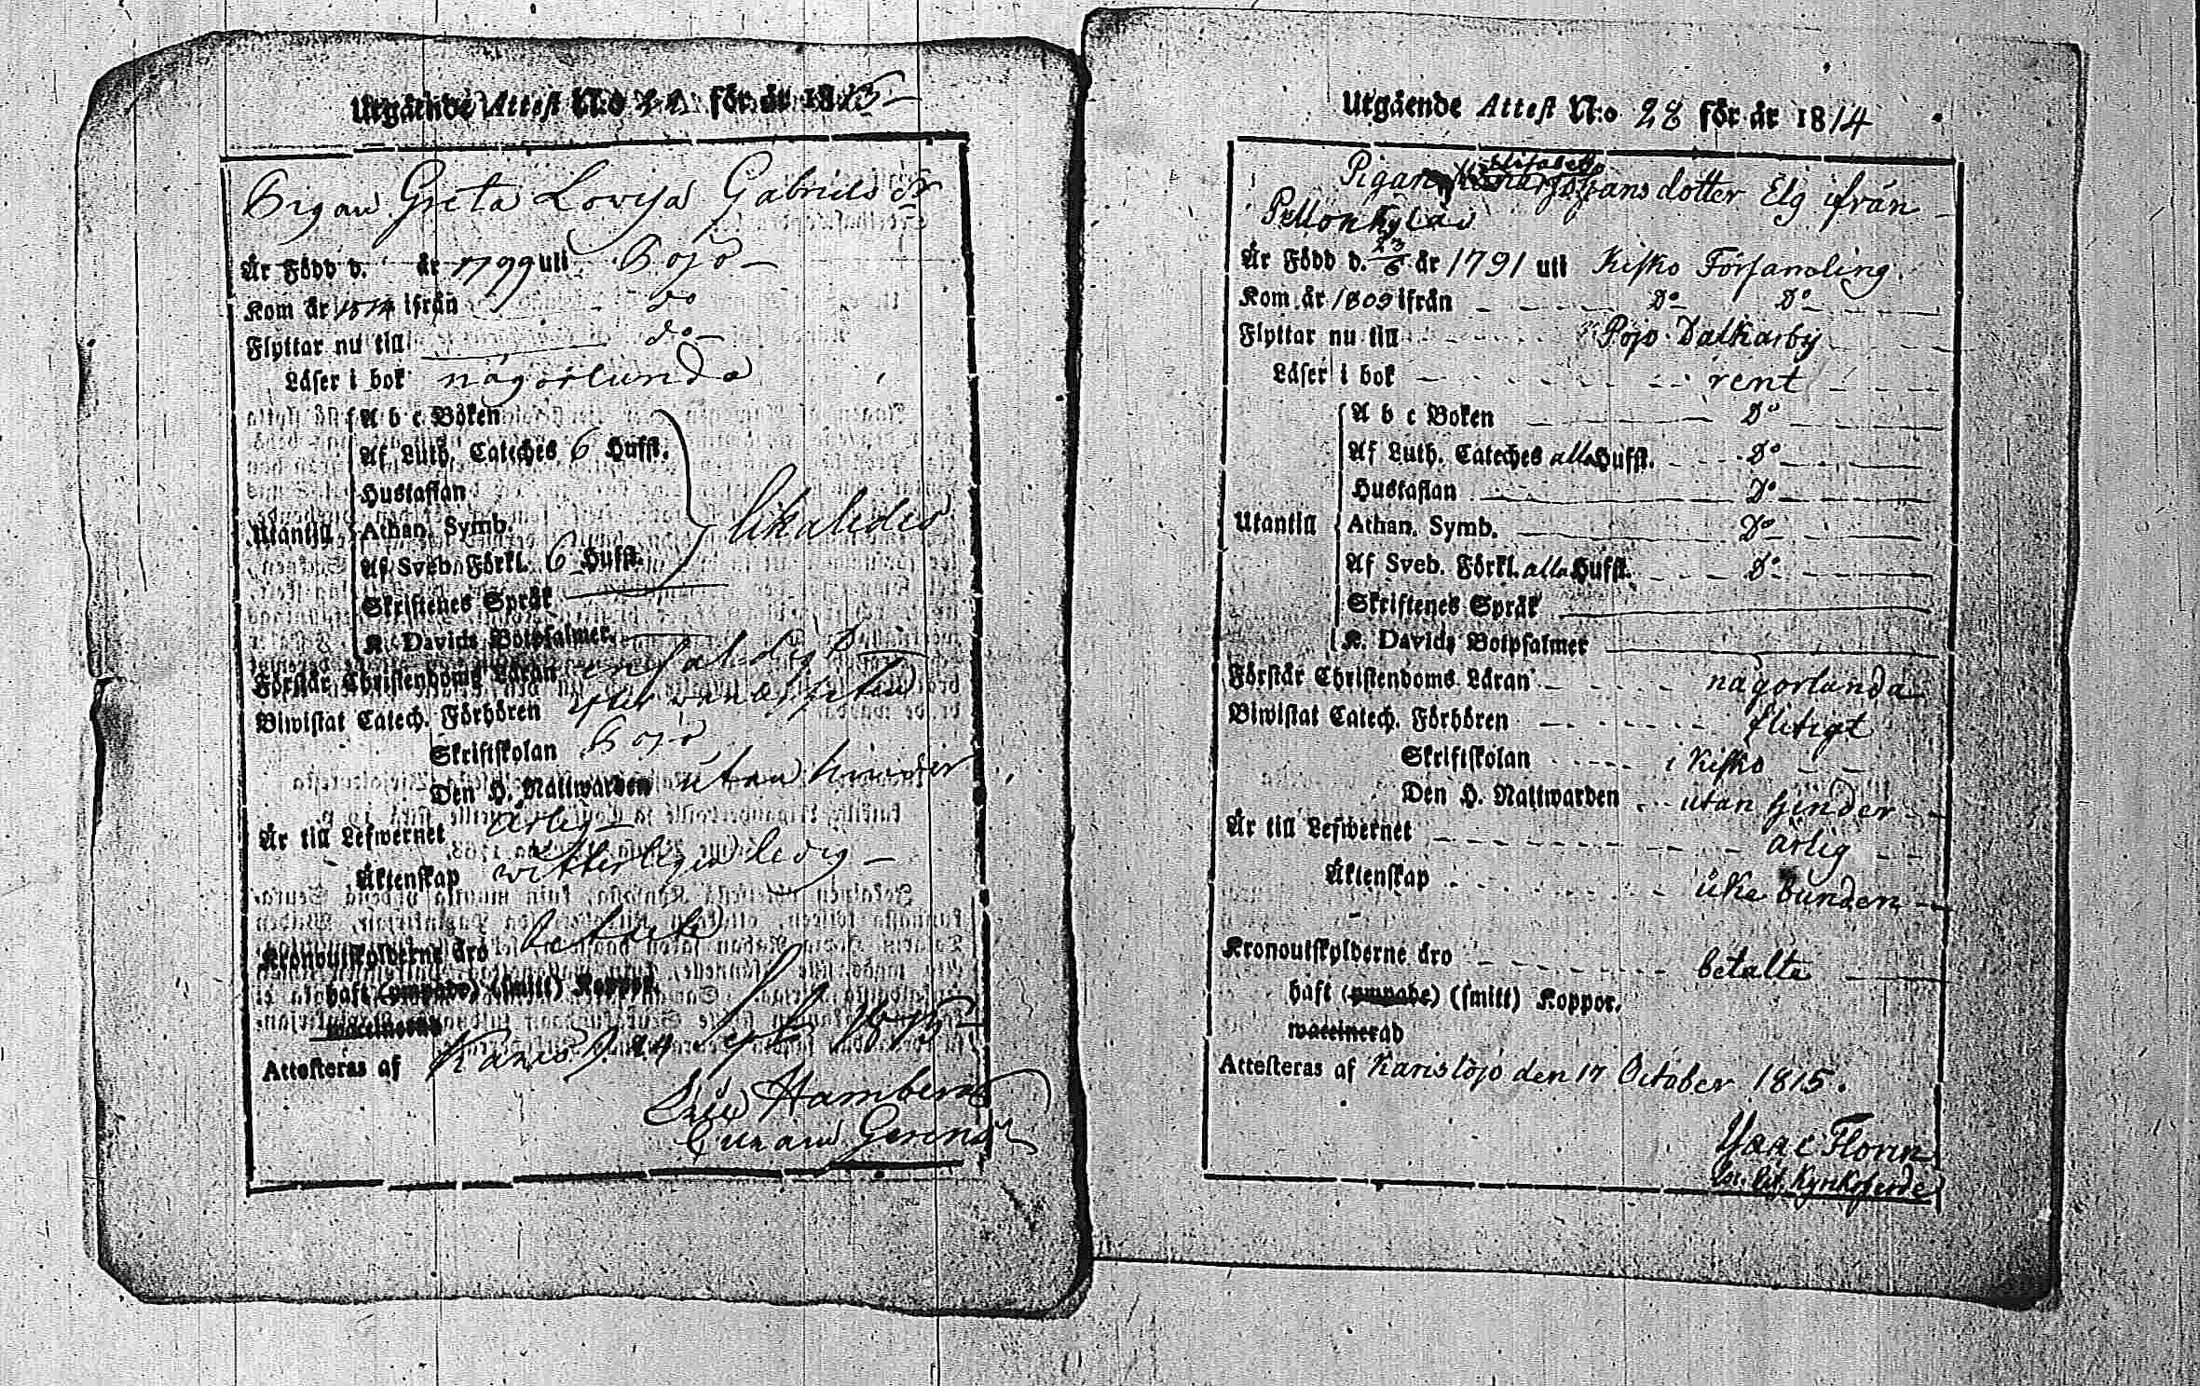 Utgående Attest N:o 22 för år 1815
Pigan Greta Lovisa Gabriels dr
Är Född d. år 1799 uti Pojo
Kom år 1814 ifrån do
Flyttar nu till do
Läser i bok någorlunda
Utantill
A b c Boken
Af Luth. Cateches 6 Hufst.
Hustaflan
Athan. Symb.
Af Sveb. Förkl. 6 Hufst.
likaledes
Skriftenes Språk
K. Davids Botpsalmer
Förstår Christendoms Läran enfaldigt
Biwistat Catech. Förhören efter wanligheten
Skriftskolan Pojo
Den H. Nattwarden utan hinder
Är till Lefwernet ärlig
Äktenskap witterligen ledig
Kronoutskylderne äro betalte
haft (ympade) (smitt) Koppor.
waccinerad
Attesteras af Karislojo 24 Sept 1815
Hamberg
Utgående Attest N:o 28 för år 1814
Elisabeth
Pigan Johansdotter Elg ifrån
Pellonkylä
Är Född d. 23/6 år 1791 uti Kisko Församling.
Kom år 1809 ifrån Do Do
Flyttar nu till Pojo Dalkarby
Läser i bok rent
Utantill
A b c Boken Do
Af Luth. Cateches alla Hufst. Do
Hustaflan Do
Athan. Symb. Do
Af Sveb. Förkl. alla Hufst. Do
Skriftenes Språk
K. Davids Botpsalmer
Förstår Christendoms Läran någorlunda
Biwistat Catech. Förhören flitigt
Skriftskolan i Kisko
Den H. Nattwarden utan hinder
Är till Lefwernet ärlig
Äktenskap icke bunden
Kronoutskylderne äro betalte
haft (ympade) (smitt) Koppor.
waccinerad
Attesteras af Karislojo den 17 October 1815.
Isaac Florin
Kyrkoherde